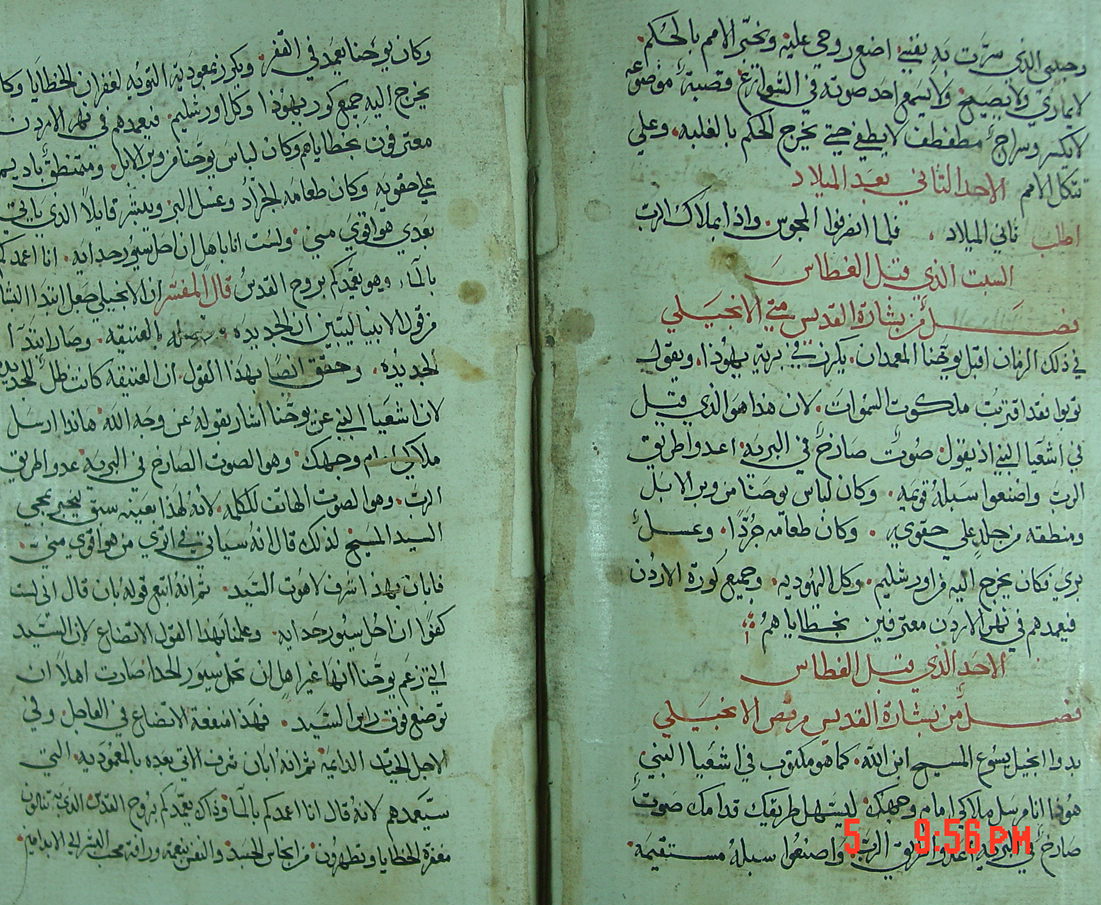 وحبيبي الذي سرّت به نفسي. اضع روحي عليه ويخبّر الامم بالحكم.
لا يماري ولا يصيح ولا يسمع احد صوته في الشوارع قصبة مرضوضه
لا تكسر وسراج مطفطف لا يطفي حتي يخرج الحكم بالغلبه. وعلي
تتكل الامم الاحد الثاني بعد الميلاد
اطلب ثاني الميلاد . فلما انصرفوا المجوس. واذا بملاك الرب
السبت الذي قبل الغطاس
فصل من بشارة القديس متي الانجيلي
في ذلك الزمان اقبل يوحنا المعمدان. يكرز في برية يهوذا. ويقول
توبوا فقد اقتربت ملكوت السموات. لان هذا هو الذي قيل
في اشعيا النبي اذ يقول. صوت صارخ في البرية. اعدوا طريق
الرب واصنعوا سبله قويمه. وكان لباس يوحنا من وبر الابل
ومنطقه من جلد علي حقويه . وكان طعامه جُردًا. وعسل
بري وكان يخرج اليه من اورشليم. وكل اليهوديه. وجميع كورة الاردن
فيعمدهم في نهر الاردن معترفين بخطاياهم
الاحد الذي قبل الغطاس
فصل من بشارة القديس مرقص الانجيلي
بدوا انجيل يسوع المسيح ابن الله. كما هو مكتوب في اشعيا النبي
هوذا انا مرسل ملاكي امام وجهك. ليسهل طريقك قدامك صوت
صارخ في البريه اعدوا طريق الرب واصنعوا سبله مستقيمة
5 9:56 PM
وكان يوحنا يعمد في القفر. ويكرز بمعمودية التوبه لغفران الخطايا وكان
يخرج اليه جميع كور يهوذا وكل اورشليم. فيعمدهم في نهر الاردن
معترفون بخطاياهم وكان لباس يوحنا من وبر الابل. ومتمنطق باديم
علي حقويه وكان طعامه الجراد وعسل البر ويبشر قايلًا الذي ياتي
بعدي هو اقوي مني. ولست انا باهل ان احل سيور حدايه. انا اعمدكم
بالماء وهو يعمدكم بروح القدس قال المفسر ان الانجيلي جعل ابتدا
من قول الانبيا ليتبين ان الجديده العتيقه. وصار ابتدا
الجديده. وحقق ايضا بهذا القول. ان العتيقه كانت ظل
لان اشعيا النبي عن يوحنا اشار بقوله عن وجه الله هاندا ارسل
ملاكي امام وجهك. وهو الصوت الصارخ في البريه عدوا طريق
الرب. وهو الصوت الهاتف للكلمه. لانه لهذا بعينه سبق يخبر بمجي
السيد المسيح لذلك قال انه سياتي في اثري من هو اقوي مني.
فابان بهذا شرف لاهوت السيد. ثم انه اتبع قوله بان قال اني لست
كفوا ان احل سيور حدايه. وعلمنا بهذا القول الاتضاع لان السيد
التي زعم يوحنا انها غير اهل ان تحل سيور الحدا. صارت اهلًا ان
توضع فوق راس السيد. فهذا منفعة الاتضاع في العاجل وفي
الاجل الحياة الدايمة ثم انه ابان شرف الاتي بعده بالمعموديه. التي
سيعمدهم لانه قال انا اعمدكم بالما وذاك يعمدكم بروح القدس الذي به تنالون
مغفرة الخطايا وتطهرون. من انجاس الجسد والنفس بنعمة ورافة محب البشر الي الابد امين